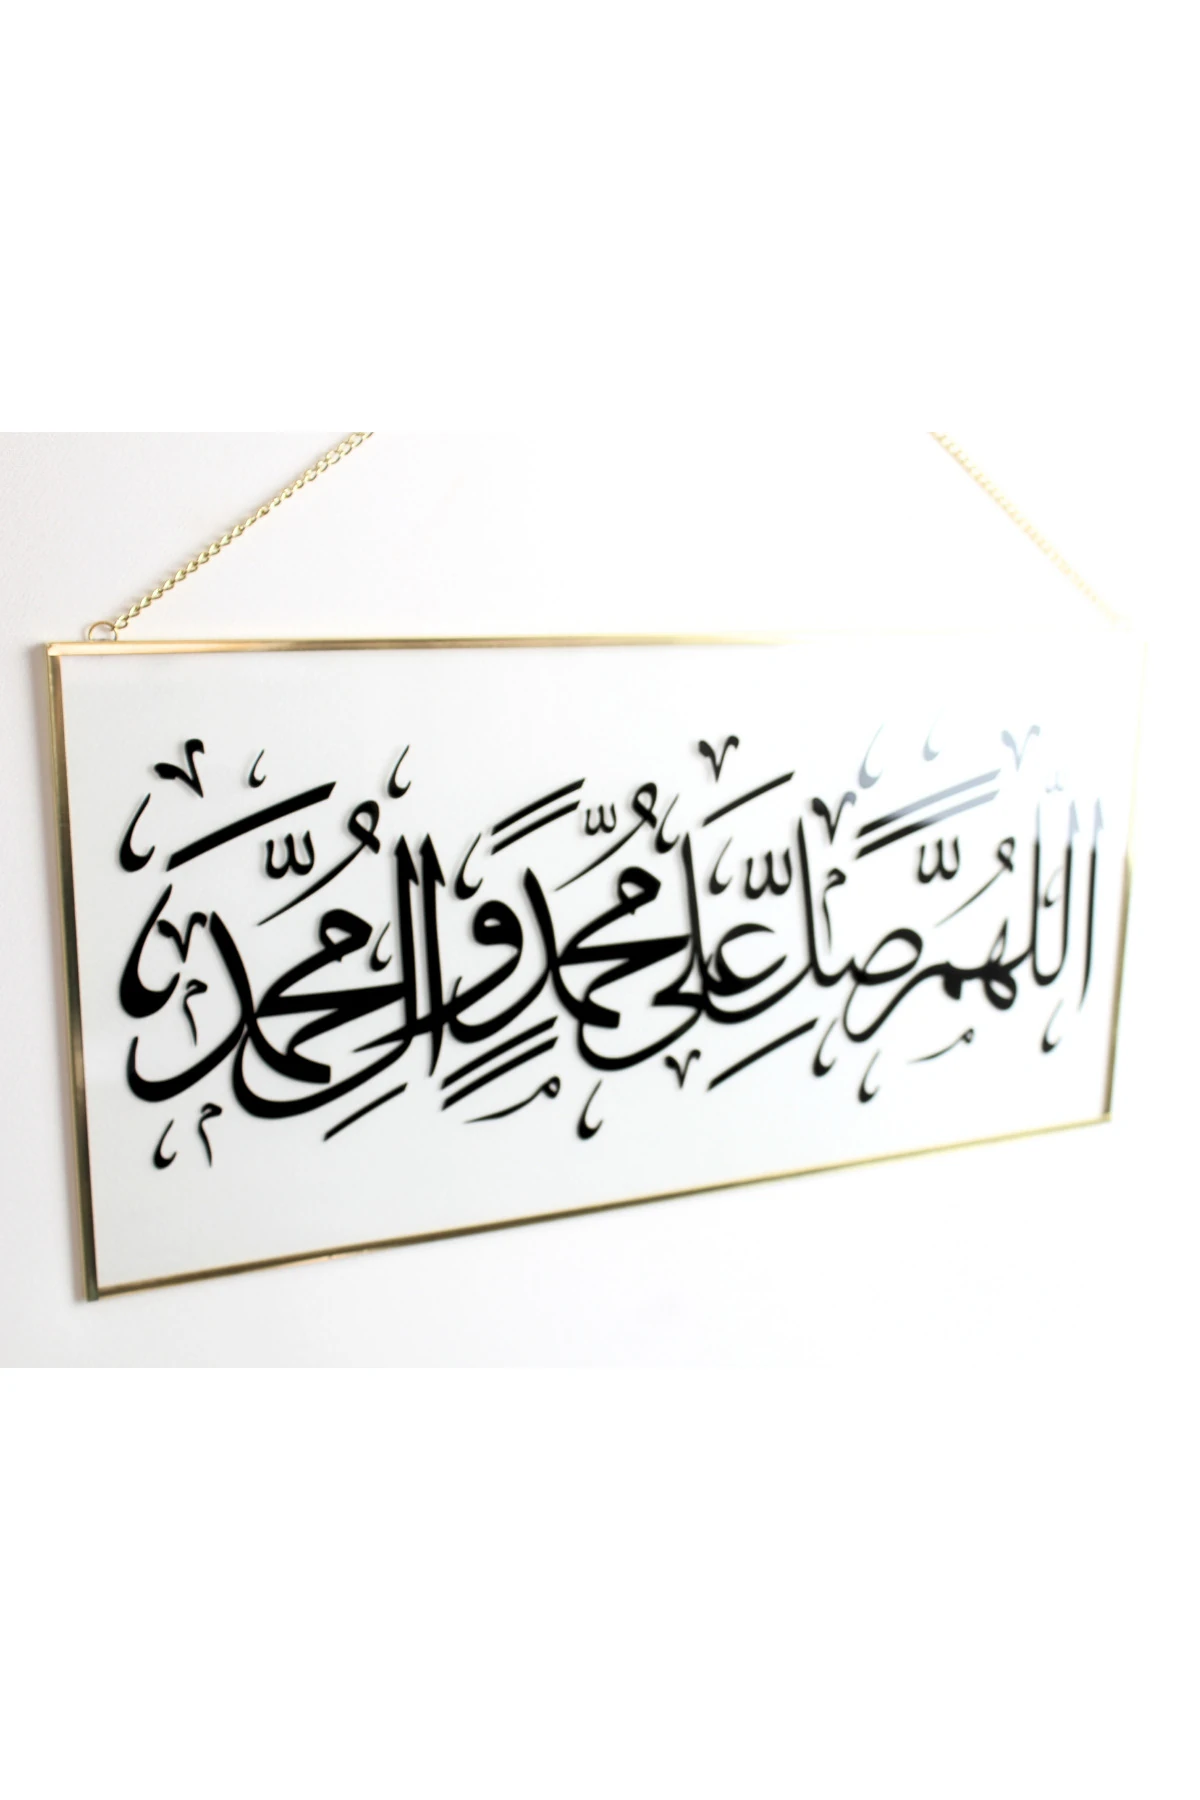 اللّٰهُمَّ صَلِّ عَلَى مُحَمَّدٍ وَاٰلِ مُحَمَّدٍ